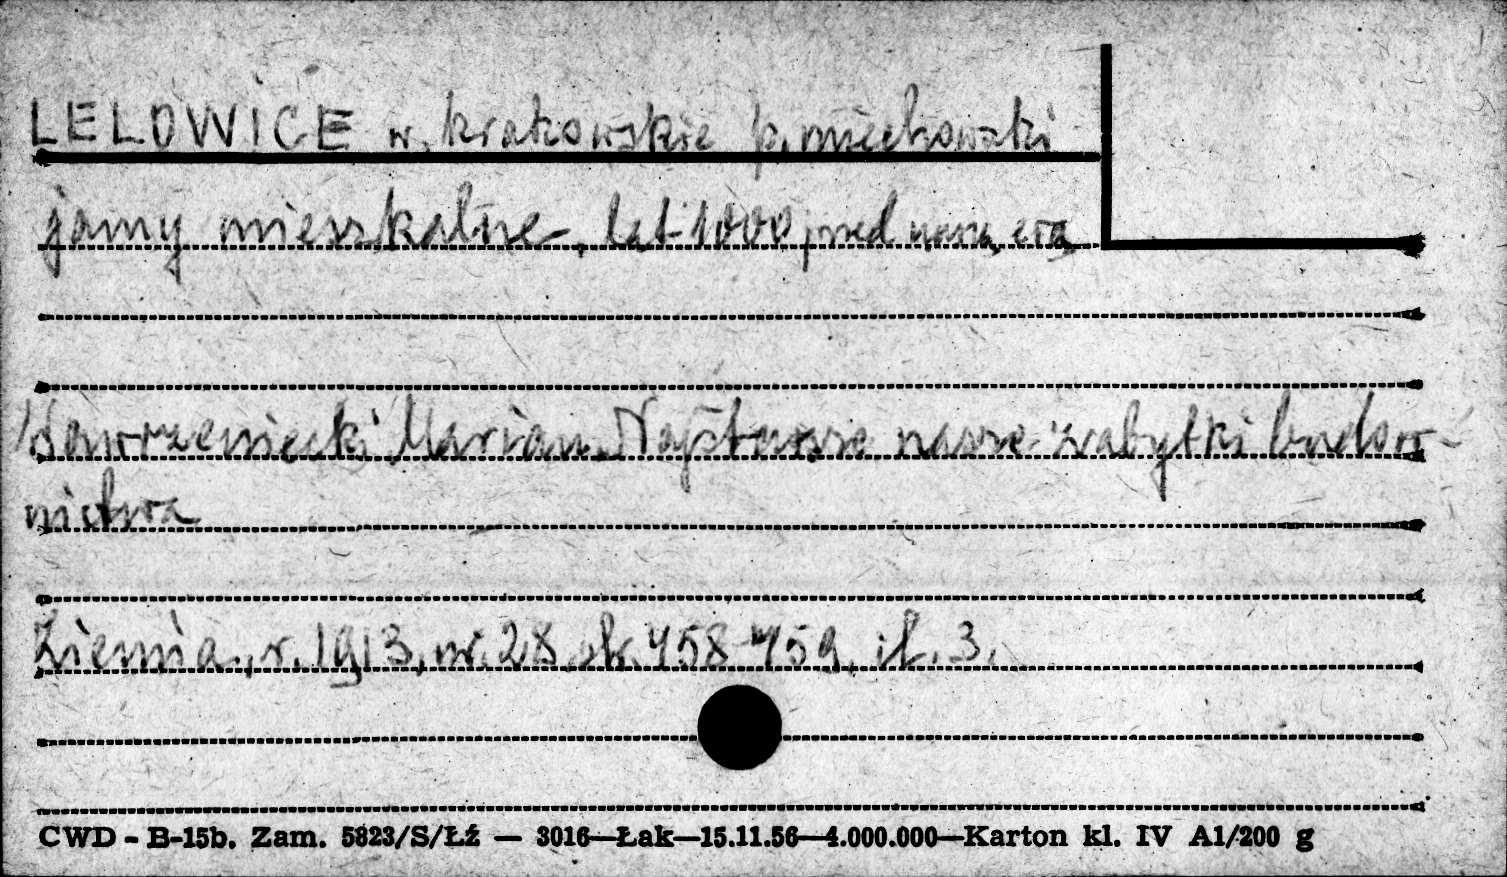 LELOWICE w. krakowskie p. miechowski
jamy mieszkalne, lat 1000 przed naszą erą
Wawrzeniecki Marian. Najstarsze nasze zabytki budow-
nictwa
Ziemia, r. 1913, nr. 28, str. 458-459, il. 3.
CWD - B-15b. Zam. 5823/S/Łź — 3016—Łak—15.11.56—4.000.000—Karton kl. IV A1/200 g